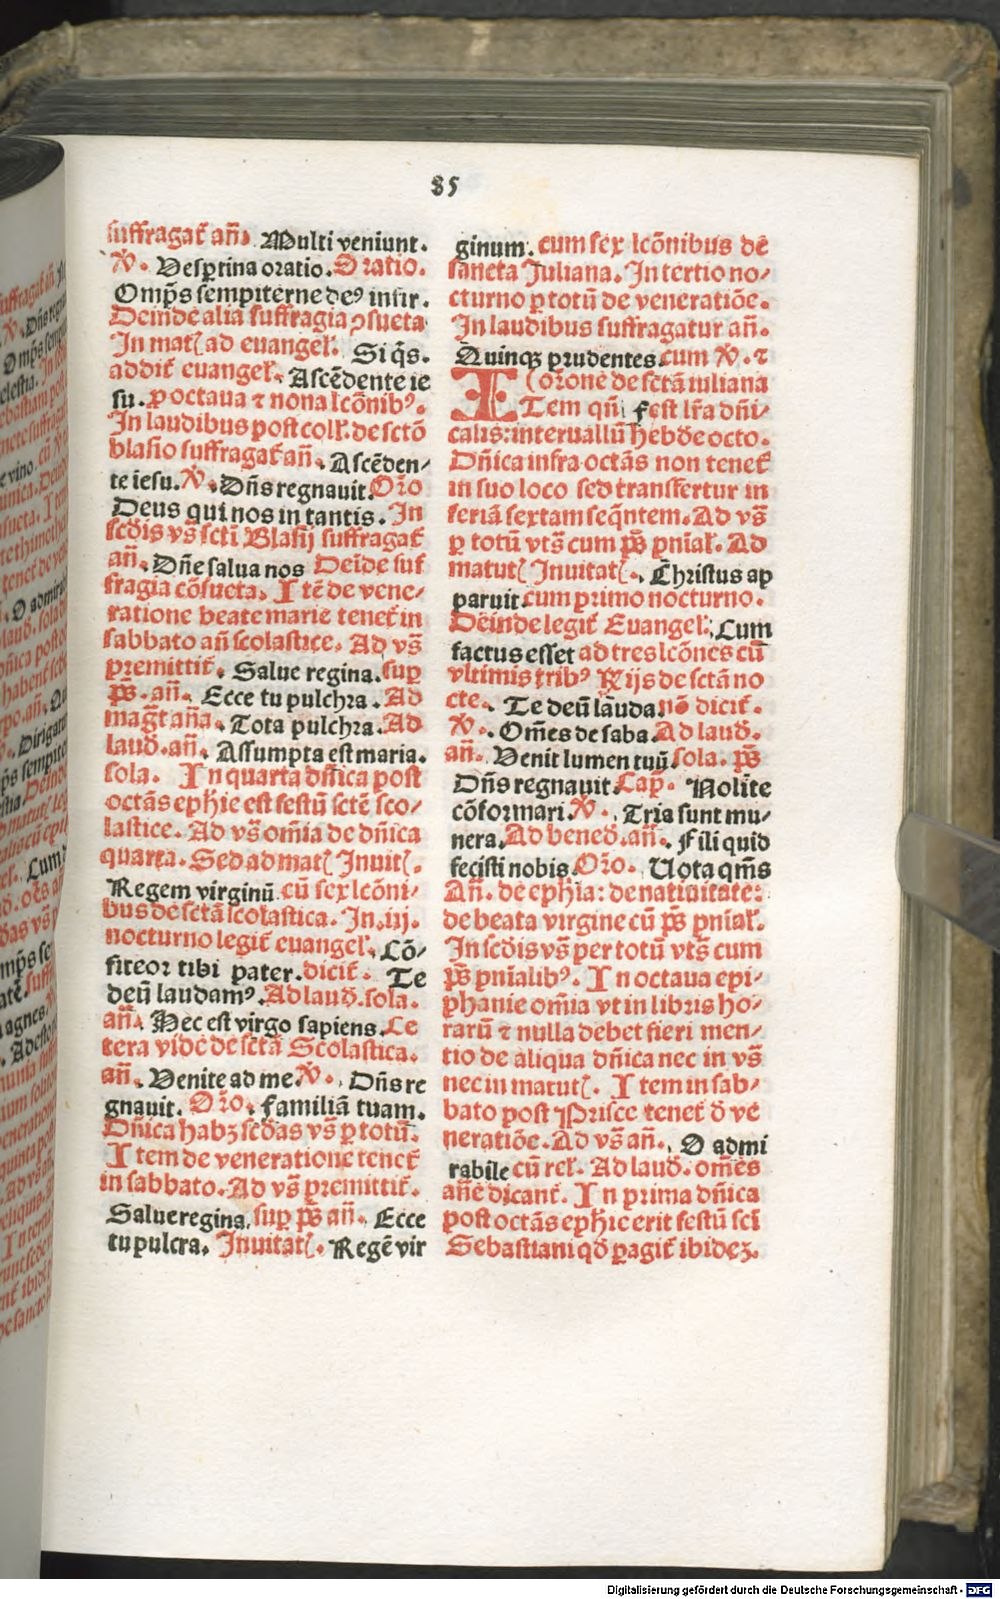 85
suffragat̃ añ. Multi veniunt.
℣. Vesꝑtina oratio. Oratio.
Omp̄s sempiterne deꝰ infir.
Deinde alia suffragia ꝯsueta
In mat̃ ad euangel̃. Si q̄s.
addit̃ euangel̃. Ascēdente ie
su. ꝑ octaua ⁊ nona lcōnibꝰ.
In laudibus post coll̃. de sctō
blasio suffragat̃ añ. Ascēden⸗
te iesu. ℣. Dn̄s regnauit. Orō
Deus qui nos in tantis. In
scd̄is vs̄ scti Blasij suffragat̃
añ. Dn̄e salua nos Deīde suf
fragia cōsueta. Itē de vene⸗
ratione beate marie tenet̃ in
sabbato añ scolastice. Ad vs̄
premittit̃. Salue regina. suꝑ
ps̄. añ. Ecce tu pulchra. Ad
magt̄ aña. Tota pulchra. Ad
laud̄. añ. Assumpta est maria.
sola. In quarta dn̄ica post
octās ephie est festū sctē sco⸗
lastice. Ad vs̄ om̄ia de dn̄ica
quarta. Sed ad mat̃ Inuit̃.
Regem virginū cū sex lcōni⸗
bus de sctā scolastica. In. iij.
nocturno legit̃ euangel̃. Cō⸗
fiteor tibi pater. dicit̃. Te
deū laudamꝰ. Ad laud̄. sola.
añ. Hec est virgo sapiens. Ce
tera vide de sctā Scolastica.
añ. Venite ad me. ℣. Dn̄s re
gnauit. Orō. Familiā tuam.
Dn̄ica habꝫ scd̄as vs̄ ꝑ totū.
Item de veneratione tenet̃
in sabbato. Ad vs̄ premittit̃.
Salue regina. suꝑ ps̄ añ. Ecce
tu pulcra. Inuitat̃. Regē vir
ginum. cum sex lcōnibus de
sancta Juliana. In tertio no⸗
cturno ꝑ totū de veneratiōe.
In laudibus suffragatur añ.
Quinqꝫ prudentes. cum ℣. ⁊
corone de sctā iuliana
ITem qn̄ fest lr̄a dn̄i⸗
calis: interuallū hebd̄e octo.
Dn̄ica infra octās non tenet̃
in suo loco sed transfertur in
feriā sextam seq̄ntem. Ad vs̄
ꝑ totū vts̄ cum ps̄ pn̄ial̃. Ad
matut̃ Inuitat̃. Christus ap
paruit. cum primo nocturno.
Deinde legit̃ Euangel̃. Cum
factus esset ad tres lcōnes cū
vltimis tribꝰ ℟ijs de sctā no
cte. Te deū lauda. nō dicit̃.
℣. Om̄es de saba. Ad laud̄.
añ. Venit lumen tuū sola. ps̄
Dn̄s regnauit. Cap̄. Nolite
cōformari. ℣. Tria sunt mu⸗
nera. Ad bened̄. añ. Fili quid
fecisti nobis. Orō. Uota qm̄s
Añ. de ephīa: de natiuitate:
de beata virgine cū ps̄ pn̄ial̃.
In scd̄is vs̄ per totū vts̄ cum
ps̄ pn̄ialibꝰ. In octaua epi⸗
phanie om̄ia vt in libris ho⸗
rarū ⁊ nulla debet fieri men⸗
tio de aliqua dn̄ica nec in vs̄
nec in matut̃. Item in sab⸗
bato post Prisce tenet̃ d̄ ve
neratiōe. Ad vs̄ añ. O admi
rabile cū rel̃. Ad laud̄. om̄es
añe dicant̃. In prima dn̄ica
post octās ephīe erit festū sci
Sebastiani qd̄ ꝑagit̃ ibidēꝫ.
Digitalisierung gefördert durch die Deutsche Forschungsgemeinschaft - DFG